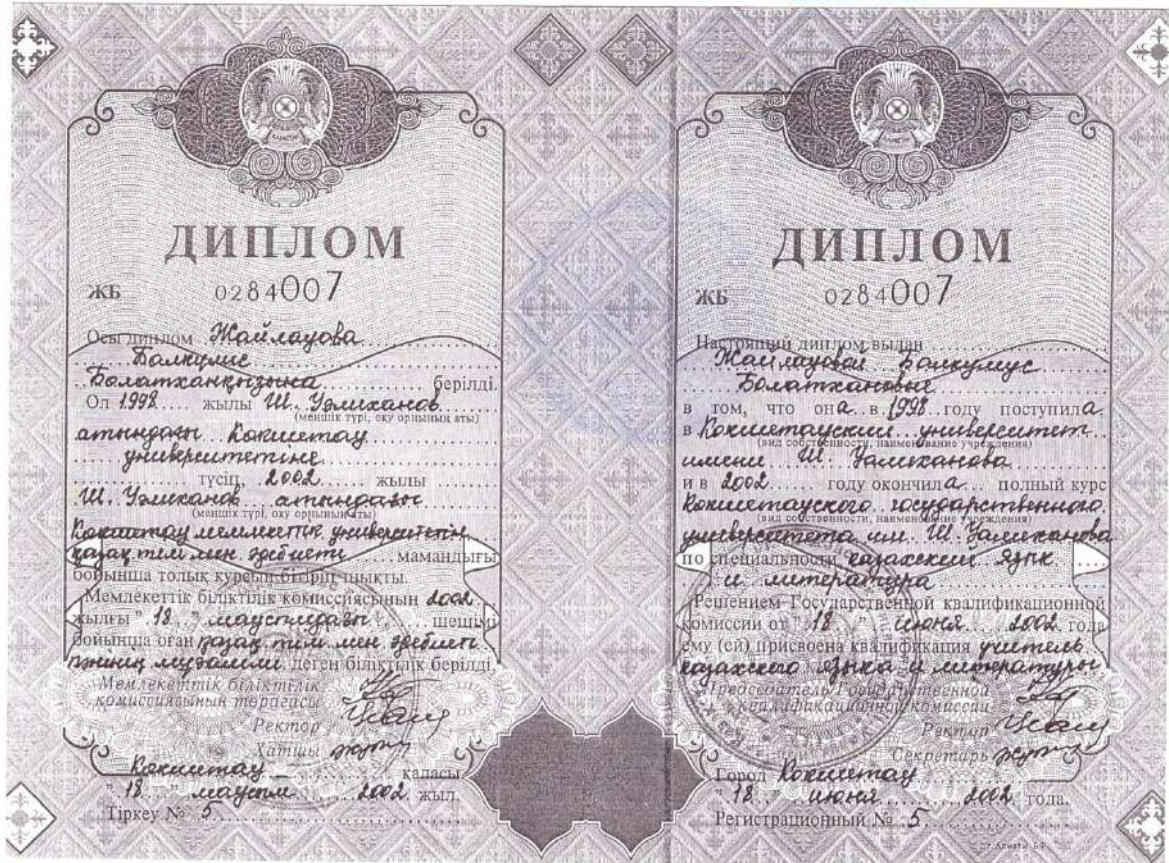 ДИПЛОМ
ЖБ 0284007
Осы диплом Жайлауова
Балкумис
Болатханқызына берілді.
Ол 1998 жылы Ш. Уәлиханов
(меншік түрі, оқу орнының аты)
атындағы Көкшетау
университетіне
түсіп, 2002 жылы
Ш. Уәлиханов атындағы
(меншік түрі, оқу орнының аты)
Көкшетау мемлекеттік университетін
қазақ тілі мен әдебиеті мамандығы
бойынша толық курсын бітіріп шықты.
Мемлекеттік біліктілік комиссиясының 2002
жылғы "18" маусымдағы шешімі
бойынша оған қазақ тілі мен әдебиеті
пәнінің мұғалімі деген біліктілік берілді.
Мемлекеттік біліктілік
комиссиясының төрағасы
Ректор
Хатшы
Көкшетау қаласы
"18" маусым 2002 жыл.
Тіркеу № 5
ДИПЛОМ
ЖБ 0284007
Настоящий диплом выдан
Жайлауовой Балкумус
Болатхановне
в том, что она в 1998 году поступила
в Кокшетауский университет
(вид собственности, наименование учреждения)
имени Ш. Уалиханова
и в 2002 году окончила полный курс
Кокшетауского государственного
(вид собственности, наименование учреждения)
университета им. Ш. Уалиханова
по специальности казахский язык
и литература
Решением Государственной квалификационной
комиссии от "18" июня 2002 года
ему (ей) присвоена квалификация учитель
казахского языка и литературы
Председатель Государственной
квалификационной комиссии
Ректор
Секретарь
Город Кокшетау
"18" июня 2002 года.
Регистрационный № 5